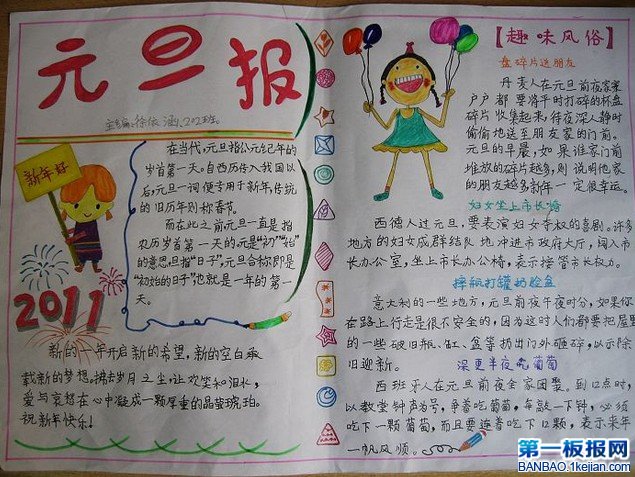 元旦报
主编:徐依涵 202班
新年好
在当代,元旦指公元纪年的
岁首第一天。自西历传入我国以
后,元旦一词便专用于新年,传统
的旧历年则称春节。
而在此之前元旦一直是指
农历岁首第一天的元是"初""始"
的意思,旦指"日子",元旦合称即是
"初始的日子"也就是一年的第一
天。
2011
新的一年开启新的希望,新的空白承
载新的梦想。拂去岁月之尘,让欢笑和泪水,
爱与哀愁在心中凝成一颗厚重的晶莹琥珀。
祝新年快乐!
【趣味风俗】
盘碎片送朋友
丹麦人在元旦前夜家家
户户都要将平时打碎的杯盘
碎片收集起来,待夜深人静时
偷偷地送至朋友家的门前。
元旦的早晨,如果谁家门前
堆放的碎片越多,则说明他家
的朋友越多新年一定很幸运。
妇女坐上市长椅
西德人过元旦,要表演妇女夺权的喜剧。许多
地方的妇女成群结队地冲进市政府大厅,闯入市
长办公室,坐上市长办公椅,表示接管市长权力。
摔瓶打罐扔脸盆
意大利的一些地方,元旦前夜午夜时分,如果你
在路上行走是很不安全的,因为这时人们都要把屋里
的一些破旧瓶、缸、盆等扔出门外砸碎,以示除
旧迎新。
深更半夜吃葡萄
西班牙人在元旦前夜全家团聚。到12点时,
以教堂钟声为号,争着吃葡萄,每敲一下钟,必须
吃下一颗葡萄,而且要连着吃下12颗,表示来年
一帆风顺。
第一板报网
BANBAO.1kejian.com